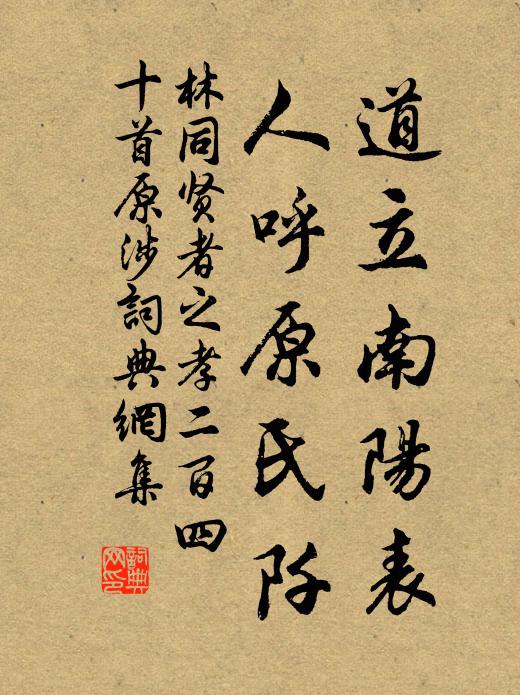 道立南陽表
人呼原氏阡
林同贤者之孝二百四
十首原涉詞典網集
詞典網印